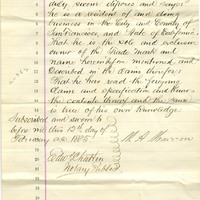 duly sworn deposes and says that
he is a resident of and doing
business in the City and County of
San Francisco, and State of California
that he is the sole and exclusive
owner of the Trade Mark and
name hereinbefore mentioned and
described in the claim therefore
that he has read the foregoing
claim and specification and knows
the contents thereof and the same
is true of his own knowledge
Subscribed and sworn to
before me this 13th day of
February A.D. 1885
Notary Public